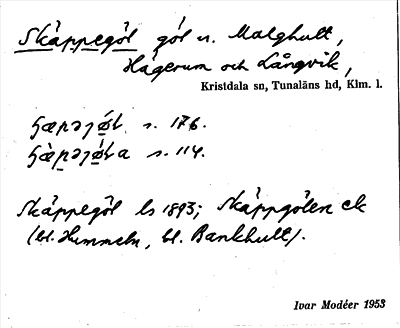 Skäppegöl göl n. Malghult,
Hägerum och Långvik,
Kristdala sn, Tunaläns hd, Klm. l.
s. 176.
s. 114.
Skäppegöl ls 1893; Skäppgölen ek
(bl. Hummeln, bl. Bankhult).
Ivar Modéer 1953